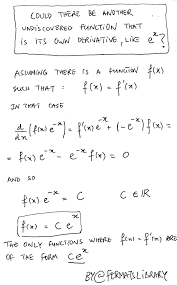 COULD THERE BE ANOTHER
UNDISCOVERED FUNCTION THAT
IS ITS OWN DERIVATIVE, LIKE e^x?
ASSUMING THERE IS A FUNCTION f(x)
SUCH THAT : f(x) = f'(x)
IN THAT CASE
d/dx (f(x)e^-x) = f'(x)e^-x + (-e^-x)f(x) =
= f(x)e^-x - e^-x f(x) = 0
AND SO
f(x)e^-x = C C ∈ ℝ
f(x) = C e^x
THE ONLY FUNCTIONS WHERE f(x) = f'(x) ARE
OF THE FORM Ce^x
BY@FERMATSLIBRARY